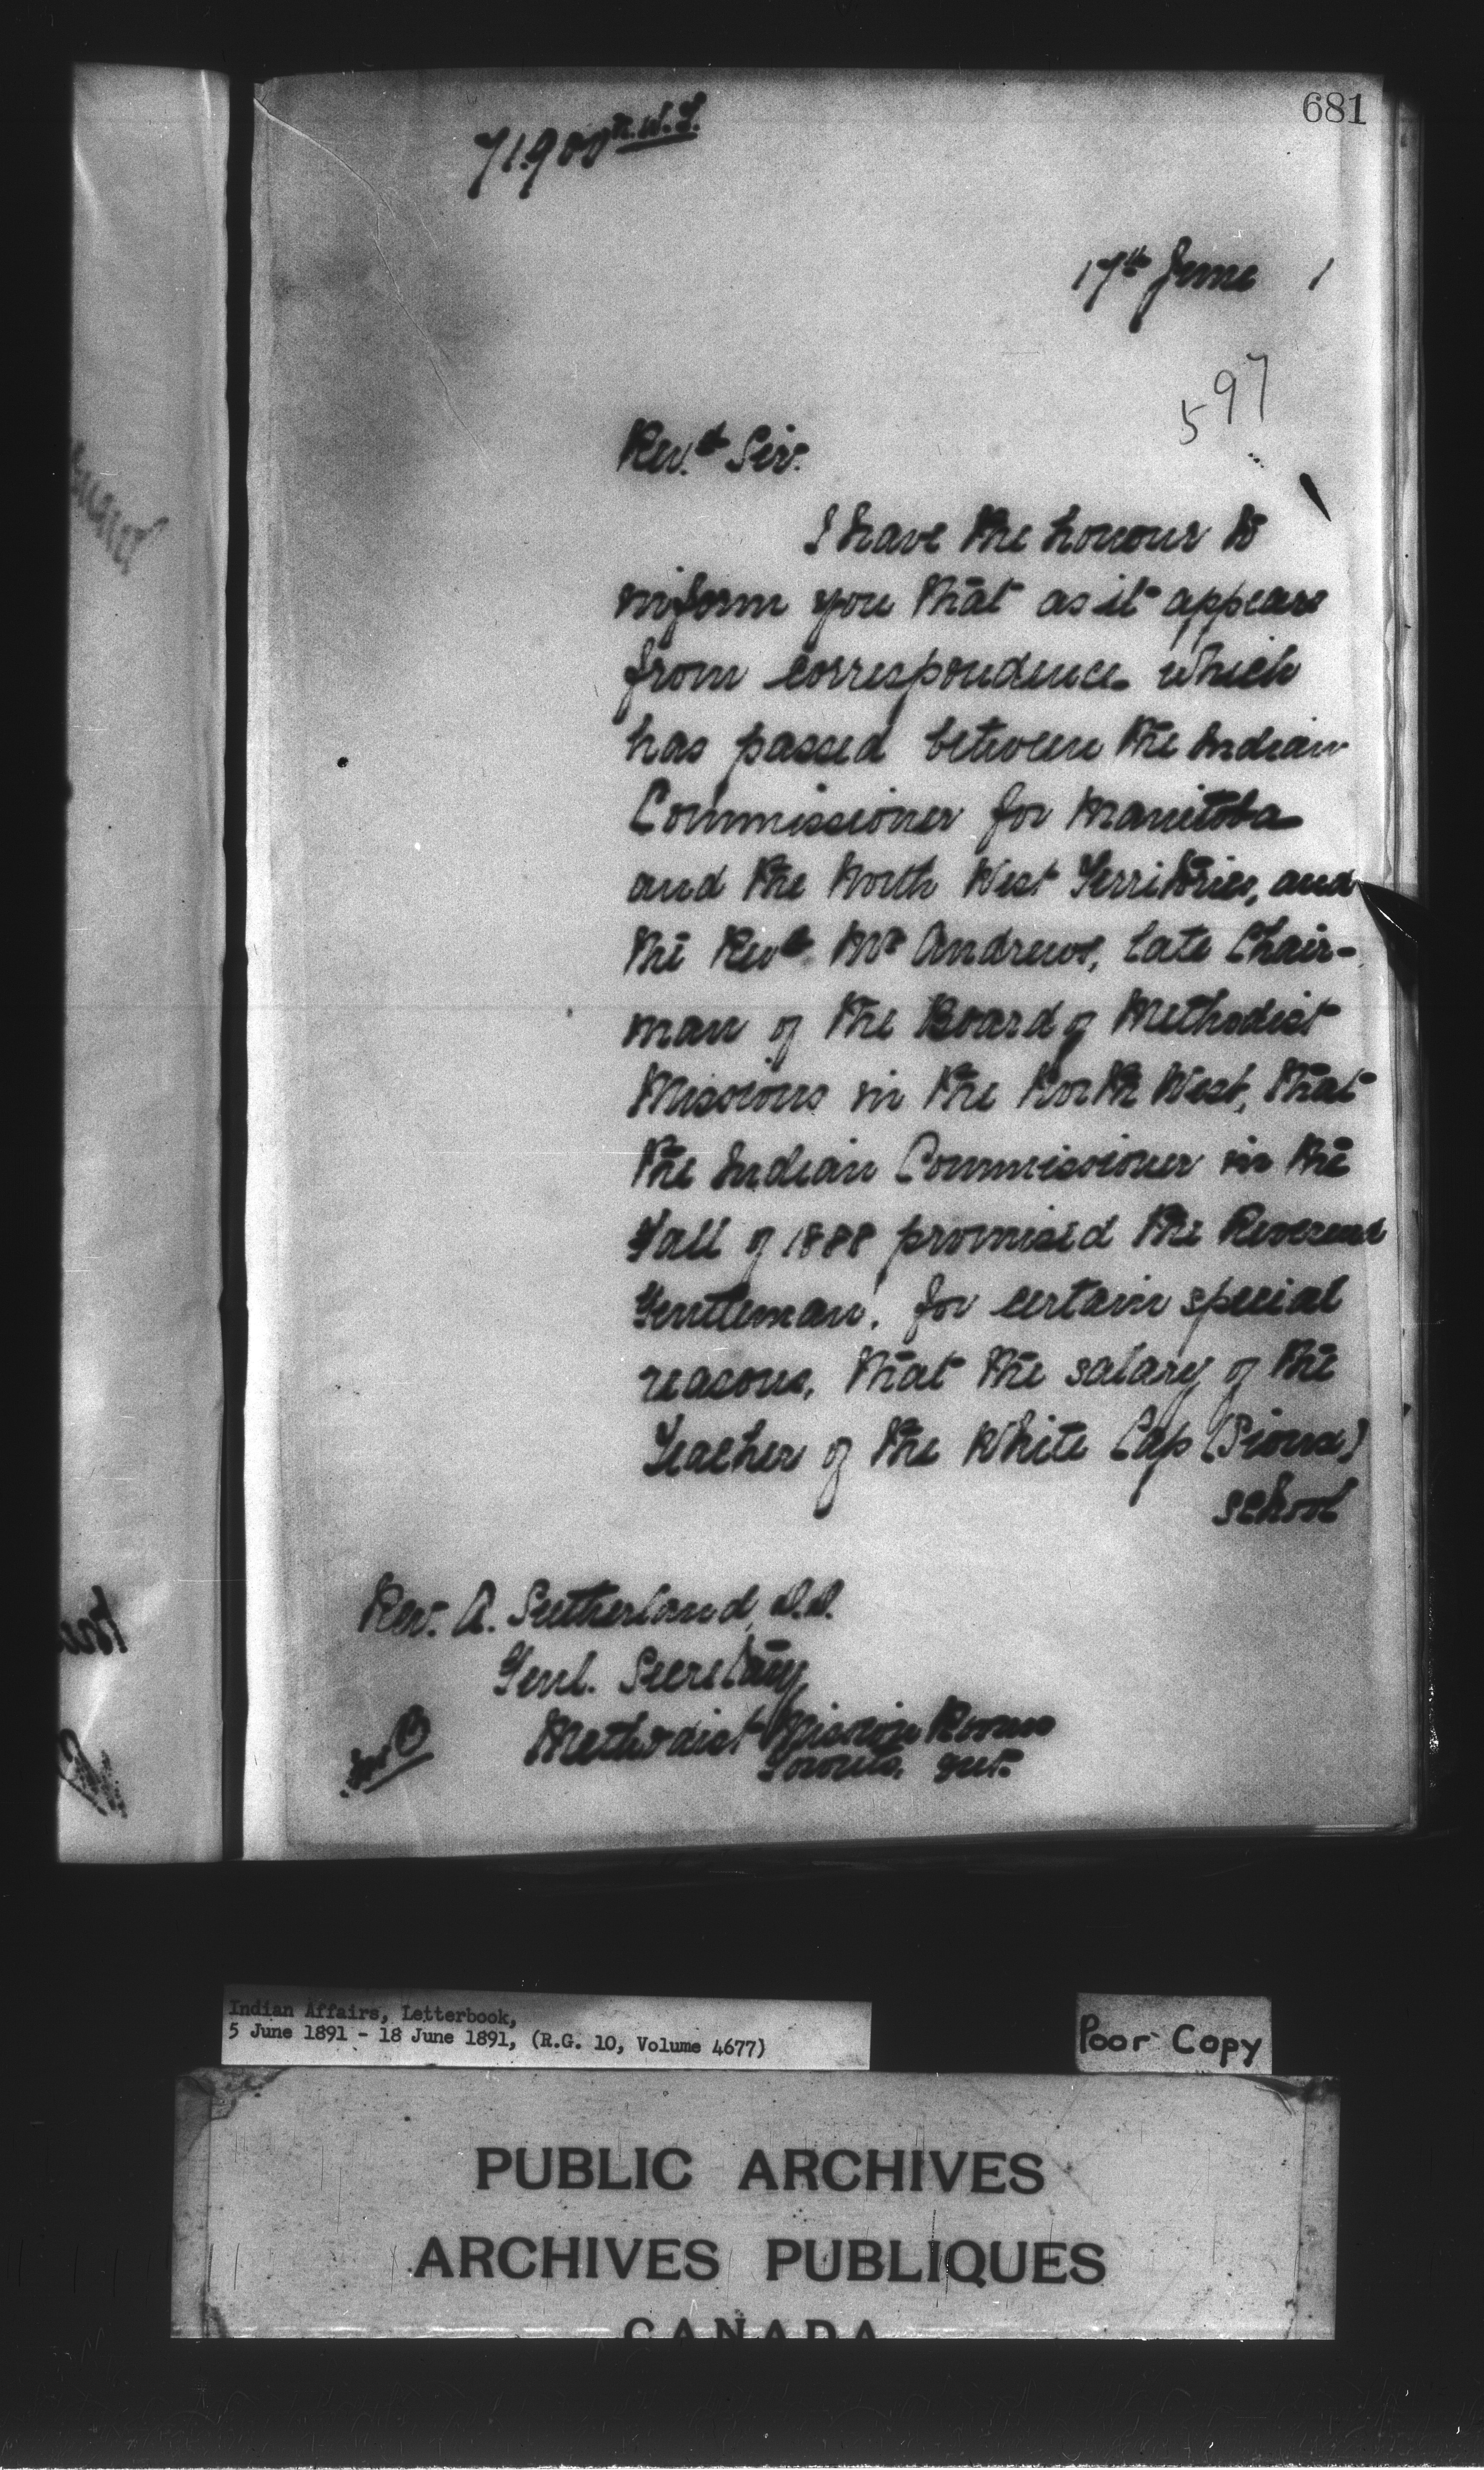 681
71.900 N.W.T.
17th June 1
597
Rev.d Sir.
I have the honour to
inform you that as it appears
from correspondence which
has passed between the Indian
Commissioner for Manitoba
and the North West Territories, and
the Revd. Mr Andrews, late Chair-
man of the Board of Methodist
Missions in the North West, that
the Indian Commissioner in the
Fall of 1888 promised the Reverend
Gentleman, for certain special
reasons, that the salary of the
Teacher of the White Cap (Sioux)
school
Rev. A. Sutherland, D.D.
Genl. Secretary,
Methodist Mission Rooms
Toronto, Ont.
Indian Affairs, Letterbook,
5 June 1891 - 18 June 1891, (R.G. 10, Volume 4677)
Poor Copy
PUBLIC ARCHIVES
ARCHIVES PUBLIQUES
CANADA